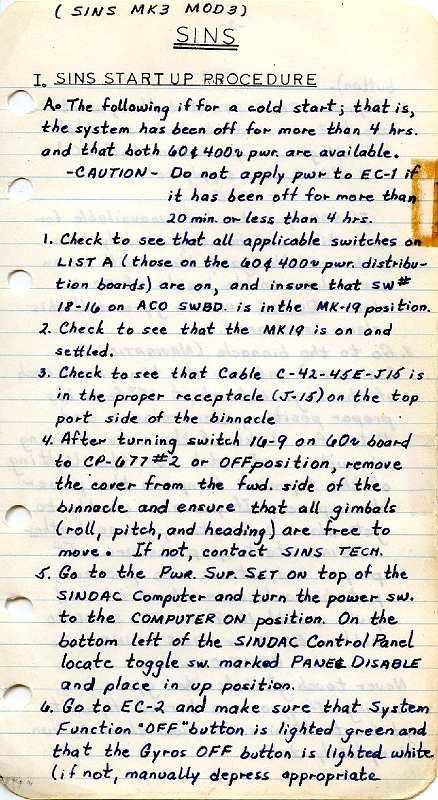 ( SINS MK3 MOD3)
SINS
I. SINS START UP PROCEDURE
A. The following if for a cold start; that is,
the system has been off for more than 4 hrs.
and that both 60 & 400~ pwr. are available.
-CAUTION- Do not apply pwr to EC-1 if
it has been off for more than
20 min. or less than 4 hrs.
1. Check to see that all applicable switches on
LIST A (those on the 60 & 400~ pwr. distribu-
tion boards) are on, and insure that SW#
18-16 on ACO SWBD. is in the MK-19 position.
2. Check to see that the MK19 is on and
settled.
3. Check to see that Cable C-42-45E-J15 is
in the proper receptacle (J-15) on the top
port side of the binnacle
4. After turning switch 16-9 on 60~ board
to CP-677#2 or OFF position, remove
the cover from the fwd. side of the
binnacle and ensure that all gimbals
(roll, pitch, and heading) are free to
move. If not, contact SINS TECH.
5. Go to the PWR. SUP. SET ON top of the
SINDAC Computer and turn the power sw.
to the COMPUTER ON position. On the
bottom left of the SINDAC Control Panel
locate toggle sw. marked PANEL DISABLE
and place in up position.
6. Go to EC-2 and make sure that System
Function "OFF" button is lighted green and
that the Gyros OFF button is lighted white
(if not, manually depress appropriate